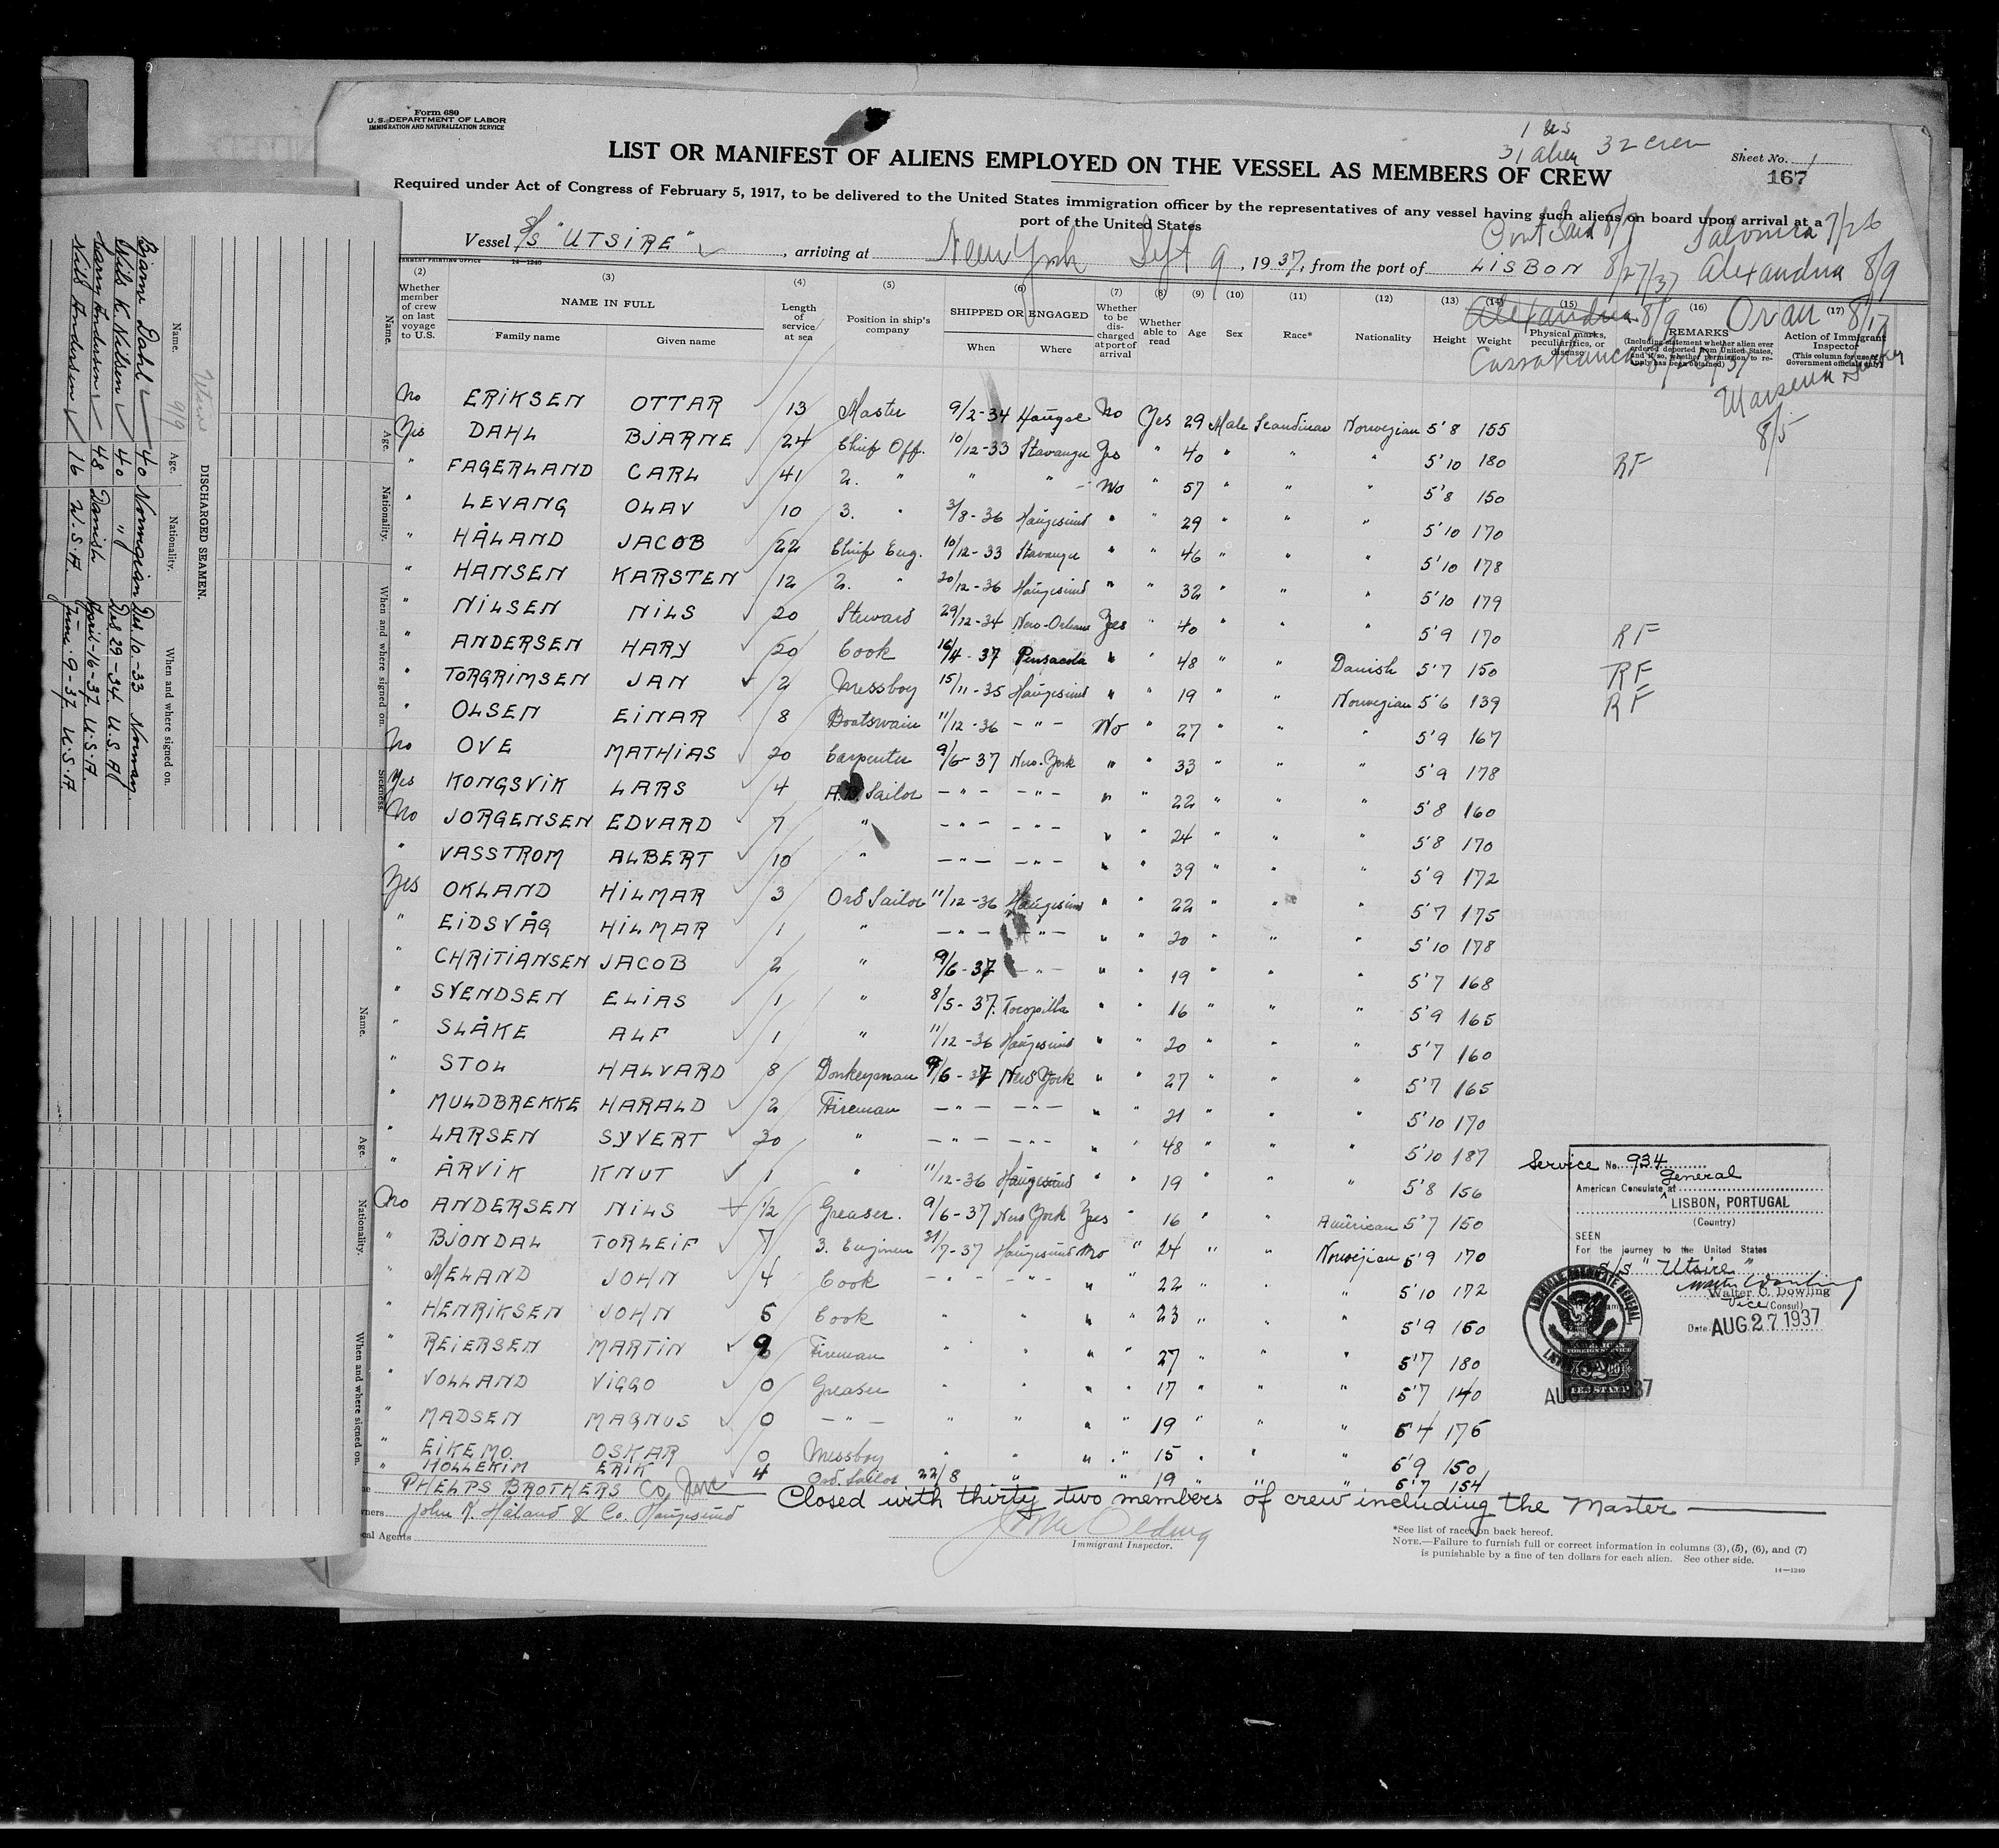 Form 680
U. S. DEPARTMENT OF LABOR
IMMIGRATION AND NATURALIZATION SERVICE
1 U.S
31 alien 32 crew
Sheet No. 1
167
LIST OR MANIFEST OF ALIENS EMPLOYED ON THE VESSEL AS MEMBERS OF CREW
Required under Act of Congress of February 5, 1917, to be delivered to the United States immigration officer by the representatives of any vessel having such aliens on board upon arrival at a
port of the United States
Port Said Salonica 7/26
Vessel S/S "UTSIRE", arriving at New York Sept 9, 1937, from the port of LISBON 8/27/37 Alexandria 8/9
Alexandria 8/9 Oran 8/17
Marseille
8/5
(2) (3) (4) (5) (6) (7) (8) (9) (10) (11) (12) (13) (14) (15) (16) (17)
Whether member of crew on last voyage to U.S.
NAME IN FULL
Family name Given name
Length of service at sea
Position in ship's company
SHIPPED OR ENGAGED
When Where
Whether to be discharged at port of arrival
Whether able to read
Age Sex Race* Nationality Height Weight
Physical marks, peculiarities, or disease
REMARKS
(Including statement whether alien ever ordered deported from United States, and if so, whether permission to reapply has been obtained)
Action of Immigrant Inspector
(This column for use of Government officials only)
No ERIKSEN OTTAR 13 Master 9/2-34 No Yes 29 Male Scandinav Norwegian 5'8 155
Yes DAHL BJARNE 24 Chief Off. 10/12-33 Stavanger Yes " 40 " " " 5'10 180 RF
" FAGERLAND CARL 41 2. " " " No " 57 " " " 5'8 150
" LEVANG OLAV 10 3. " 3/8-36 Haugesund " " 29 " " " 5'10 170
" HÅLAND JACOB 22 Chief Eng. 10/12-33 Stavanger " " 46 " " " 5'10 178
" HANSEN KARSTEN 12 2. " 20/12-36 Haugesund " " 32 " " " 5'10 179
" NILSEN NILS 20 Steward 29/12-34 New-Orleans Yes " 40 " " " 5'9 170 RF
" ANDERSEN HARY 20 Cook 16/4-37 Pensacola " " 48 " " Danish 5'7 150 RF
" TORGRIMSEN JAN 2 Messboy 15/11-35 Haugesund " " 19 " " Norwegian 5'6 139 RF
" OLSEN EINAR 8 Boatswain 11/12-36 -"- No " 27 " " " 5'9 167
No OVE MATHIAS 20 Carpenter 9/6-37 New-York " " 33 " " " 5'9 178
Yes KONGSVIK LARS 4 A.B. Sailor -"- -"- " " 22 " " " 5'8 160
No JORGENSEN EDVARD 7 " -"- -"- " " 24 " " " 5'8 170
" VASSTROM ALBERT 10 " -"- -"- " " 39 " " " 5'9 172
Yes OKLAND HILMAR 3 Ord Sailor 11/12-36 Haugesund " " 22 " " " 5'7 175
" EIDSVÅG HILMAR 1 " -"- -"- " " 20 " " " 5'10 178
" CHRITIANSEN JACOB 2 " 9/6-37 -"- " " 19 " " " 5'7 168
" SVENDSEN ELIAS 1 " 8/5-37. Tocopilla " " 16 " " " 5'9 165
" SLÅKE ALF 1 " 11/12-36 Haugesund " " 20 " " " 5'7 160
" STOL HALVARD 8 Donkeyman 9/6-37 New York " " 27 " " " 5'7 165
" MULDBREKKE HARALD 2 Fireman -"- -"- " " 21 " " " 5'10 170
" LARSEN SYVERT 30 " -"- -"- " " 48 " " " 5'10 187
" ÅRVIK KNUT 1 " 11/12-36 Haugesund " " 19 " " " 5'8 156
No ANDERSEN NILS 1/2 Greaser. 9/6-37 New York Yes " 16 " " American 5'7 150
" BJONDAL TORLEIF 7 3. Engineer 31/7-37 Haugesund No " 24 " " Norwegian 5'9 170
" MELAND JOHN 4 Cook -"- -"- " " 22 " " " 5'10 172
" HENRIKSEN JOHN 5 Cook " " " " 23 " " " 5'9 160
" REIERSEN MARTIN 9 Fireman " " " " 27 " " " 5'7 180
" VOLLAND VIGGO 0 Greaser " " " " 17 " " " 5'7 140
" MADSEN MAGNUS 0 -"- " " " " 19 " " " 5'4 176
" EIKEMO. OSKAR 0 Messboy " " " " 15 " " " 5'9 150
" HOLLEKIM ERIK 4 Ord. Sailor 22/8 " " 19 " " " 5'7 154
PHELPS BROTHERS Co, Inc
Closed with thirty two members of crew including the Master
John K. Håland & Co. Haugesund
Immigrant Inspector.
*See list of races on back hereof.
NOTE.—Failure to furnish full or correct information in columns (3), (5), (6), and (7)
is punishable by a fine of ten dollars for each alien. See other side.
14—1240
Service No. 934
American Consulate General at
LISBON, PORTUGAL
(Country)
SEEN
For the journey to the United States
s/s "Utsire"
Walter C. Dowling
Vice (Consul)
Date AUG 27 1937
Utsire 9/9
DISCHARGED SEAMEN.
Name. Age. Nationality. When and where signed on.
Bjarne Dahl 40 Norwegian Des 10-33 Norway.
Nils K. Nilsen 40 " Des 29-34 U.S.A
Harry Andersen 48 Danish April-16-37 U.S.A.
Nils Andersen 16 U.S.A. June-9-37 U.S.A
Name. Age. Nationality. When and where signed on. Sickness.
Name. Age. Nationality. When and where signed on.